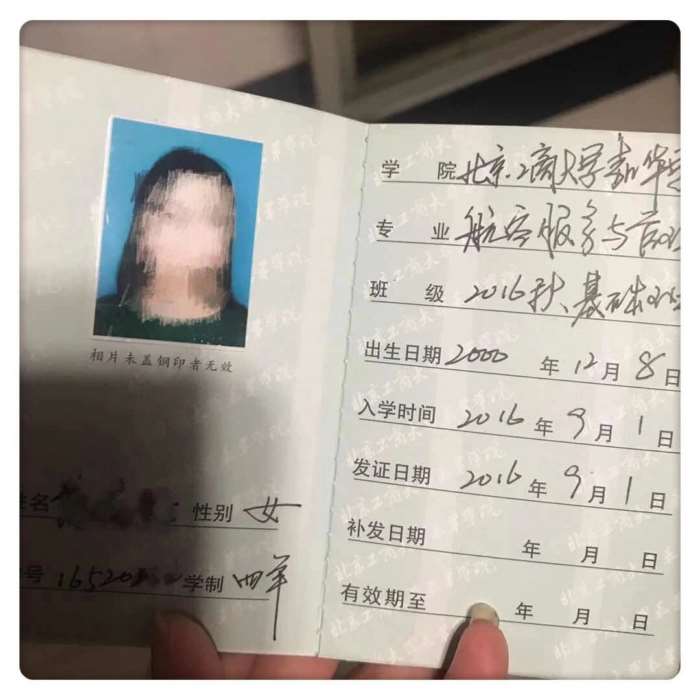 相片未盖钢印者无效
姓名 性别 女
号 165202 学制 四年
学院 北京工商大学嘉华
专业 航空服务与
班级 2016秋基础
出生日期 2000 年 12 月 8 日
入学时间 2016 年 9 月 1 日
发证日期 2016 年 9 月 1 日
补发日期 年 月 日
有效期至 年 月 日